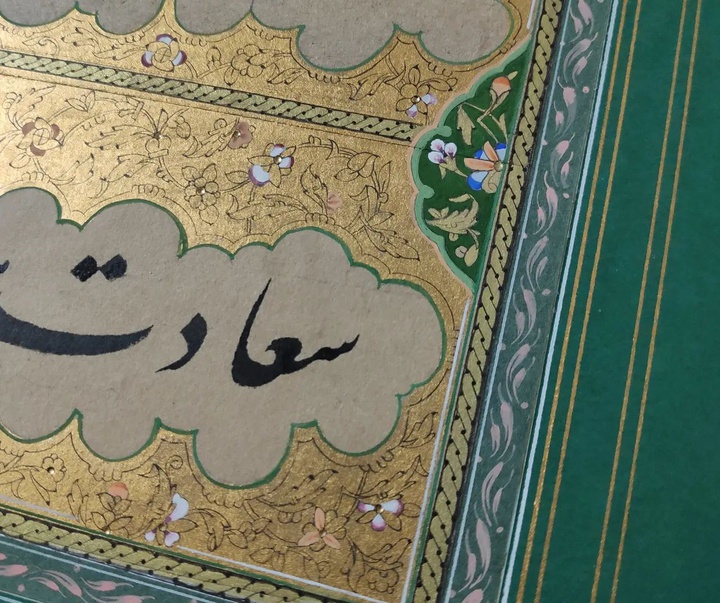 سعادت